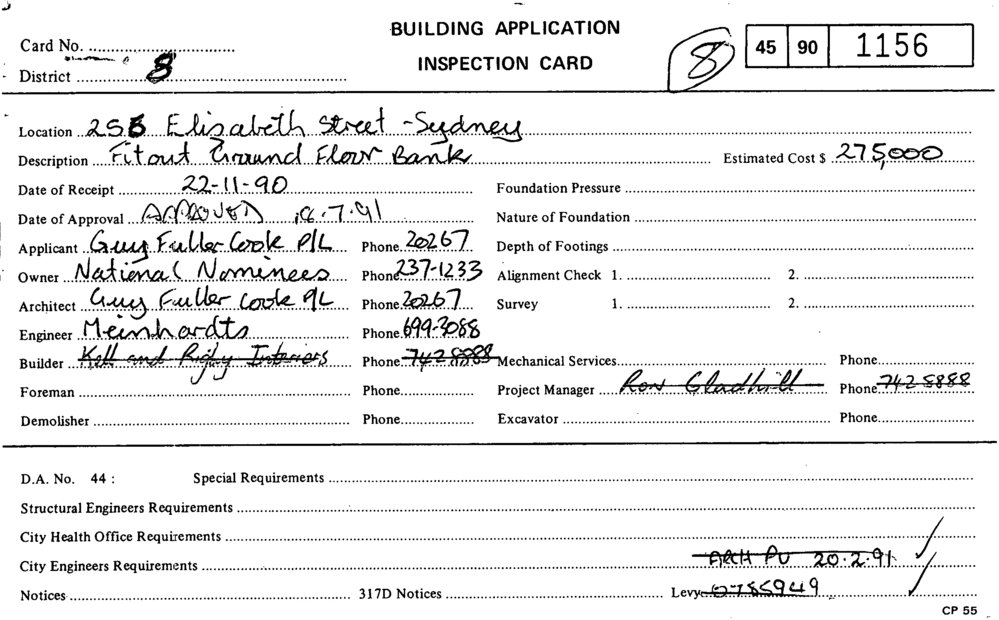 BUILDING APPLICATION
INSPECTION CARD
Card No. ..............................
District .................. 8 ..................
8
45 90 1156
Location 255 Elisabeth Street - Sydney
Description Fitout Ground Floor Bank Estimated Cost $ 275,000
Date of Receipt 22-11-90 Foundation Pressure
Date of Approval APPROVED 16.7.91 Nature of Foundation
Applicant Guy Fuller Cook P/L Phone 20267 Depth of Footings
Owner National Nominees Phone 237-1233 Alignment Check 1. 2.
Architect Guy Fuller Cook P/L Phone 20267 Survey 1. 2.
Engineer Meinhardts Phone 699-3088
Builder Kell and Rigby Interiors Phone 742 8888 Mechanical Services Phone
Foreman Phone Project Manager Ron Gladhill Phone 742 8888
Demolisher Phone Excavator Phone
D.A. No. 44 : Special Requirements
Structural Engineers Requirements
City Health Office Requirements
City Engineers Requirements ARCH PU 20.2.91
Notices 317D Notices Levy 0785949
CP 55